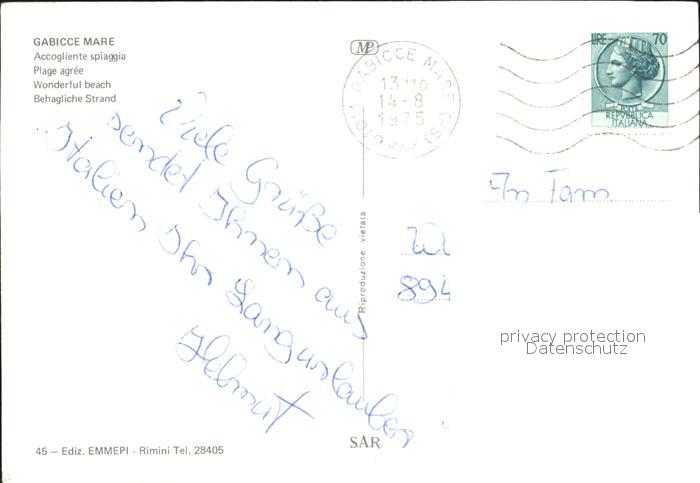 GABICCE MARE
Accogliente spiaggia
Plage agrée
Wonderful beach
Behagliche Strand
MP
61011 GABICCE MARE (PS)
13
14-8
1975
LIRE 70
POSTE
REPVBBLICA
ITALIANA
Viele Grüße
sendet Ihnen aus
Italien Ihr Langurlauber
Helmut
An Fam
894
Riproduzione vietata
privacy protection
Datenschutz
45 — Ediz. EMMEPI - Rimini Tel. 28405
SAR